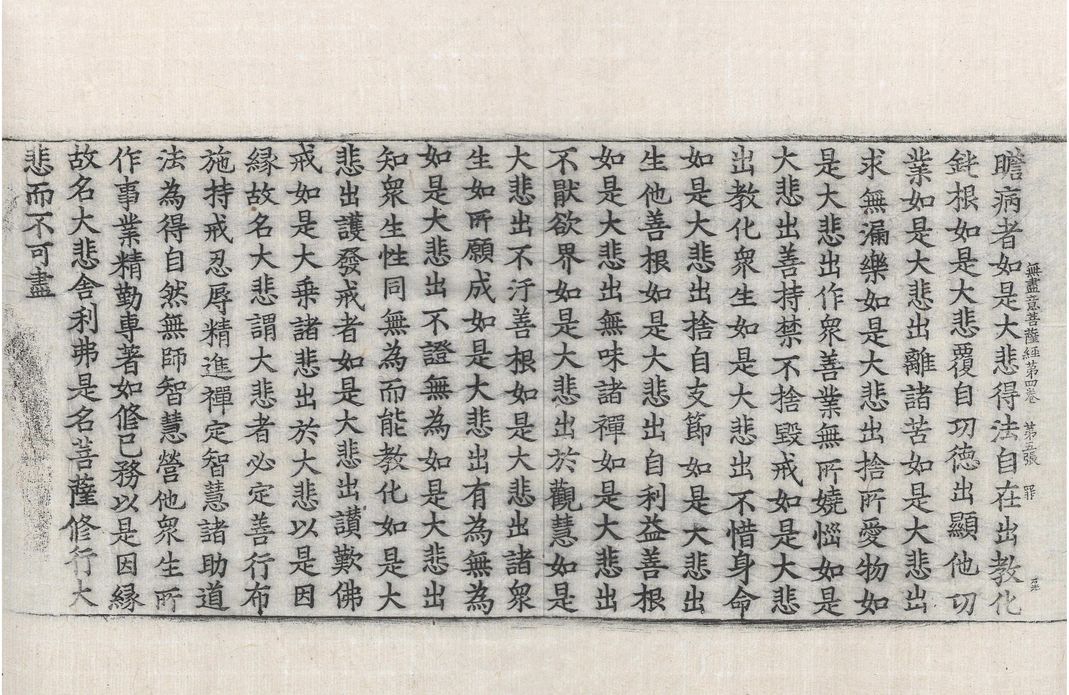 無盡意菩薩經第四卷 第五張 罪
瞻病者如是大悲得法自在出教化
鈍根如是大悲覆自功徳出顯他功
業如是大悲出離諸苦如是大悲出
求無漏樂如是大悲出捨所愛物如
是大悲出作衆善業無所嬈惱如是
大悲出善持禁不捨毀戒如是大悲
出教化衆生如是大悲出不惜身命
如是大悲出捨自支節如是大悲出
生他善根如是大悲出自利益善根
如是大悲出無味諸禪如是大悲出
不猒欲界如是大悲出於觀慧如是
大悲出不汙善根如是大悲出諸衆
生如所願成如是大悲出有為無為
如是大悲出不證無為如是大悲出
知衆生性同無為而能教化如是大
悲出護發戒者如是大悲出讃歎佛
戒如是大乘諸悲出於大悲以是因
縁故名大悲謂大悲者必定善行布
施持戒忍辱精進禪定智慧諸助道
法為得自然無師智慧營他衆生所
作事業精勤專著如修已務以是因縁
故名大悲舍利弗是名菩薩修行大
悲而不可盡